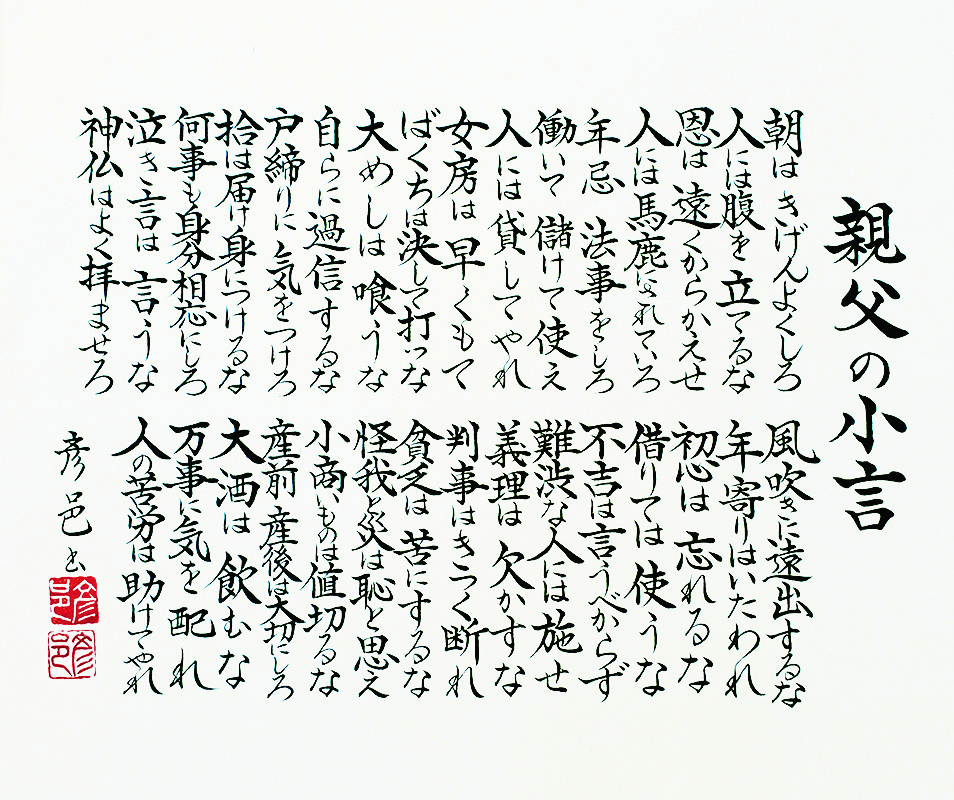 親父の小言
朝はきげんよくしろ
人には腹を立てるな
恩は遠くからかえせ
人には馬鹿にされていろ
年忌 法事をしろ
働いて儲けて使え
人には貸してやれ
女房は早くもて
ばくちは決して打つな
大めしは喰うな
自らに過信するな
戸締りに気をつけろ
拾は届け身につけるな
何事も身分相応にしろ
泣き言は言うな
神仏はよく拝ませろ
風吹きに遠出するな
年寄りはいたわれ
初心は忘れるな
借りては使うな
不吉は言うべからず
難渋な人には施せ
義理は欠かすな
判事はきつく断れ
貧乏は苦にするな
怪我と災は恥と思え
小商いものは値切るな
産前 産後は大切にしろ
大酒は飲むな
万事に気を配れ
人の苦労は助けてやれ
彦邑書
彦邑
彦邑